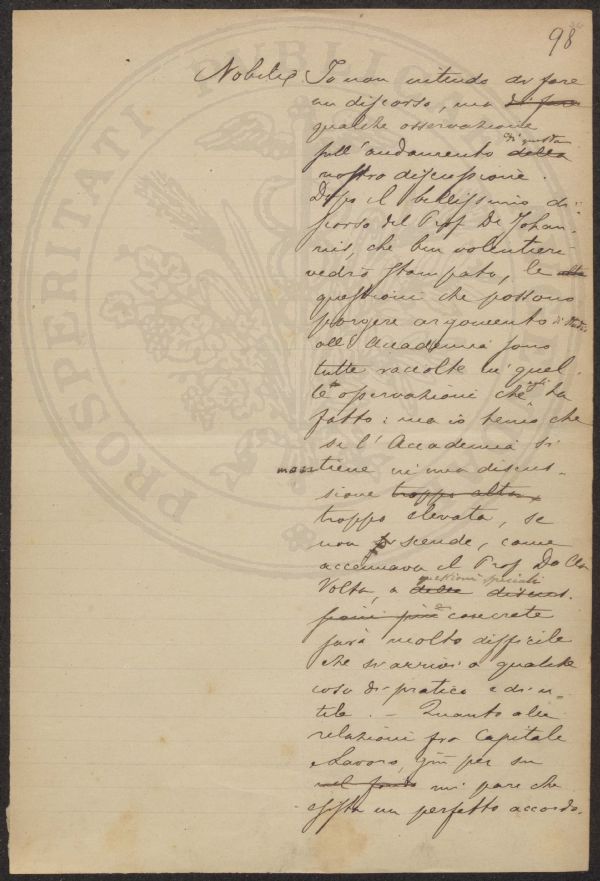 98
Nobili Io non intendo di fare
un discorso, ma di fare
qualche osservazione
di questa
sull'andamento della
nostra discussione.
Dopo il bellissimo di-
scorso del Prof De Johan-
nis, che ben volentieri
vedrò stampato, le altre
questioni che possono
porgere argomento di studio
all'Accademia sono
tutte raccolte in quel-
le osservazioni che egli ha
fatto: ma io temo che
se l'Accademia si
mantiene in una discus-
sione troppo alta,
troppo elevata, se
non scende, come
accennava il Prof Dalla
questioni speciali
Volta, a delle discus-
sioni più concrete
sarà molto difficile
che si arrivi a qualche
cosa di pratico e di u-
tile. - Quanto alle
relazioni fra Capitale
e Lavoro, già per su
nel fondo mi pare che
esista un perfetto accordo.
PROSPERITATI PUBLICAE